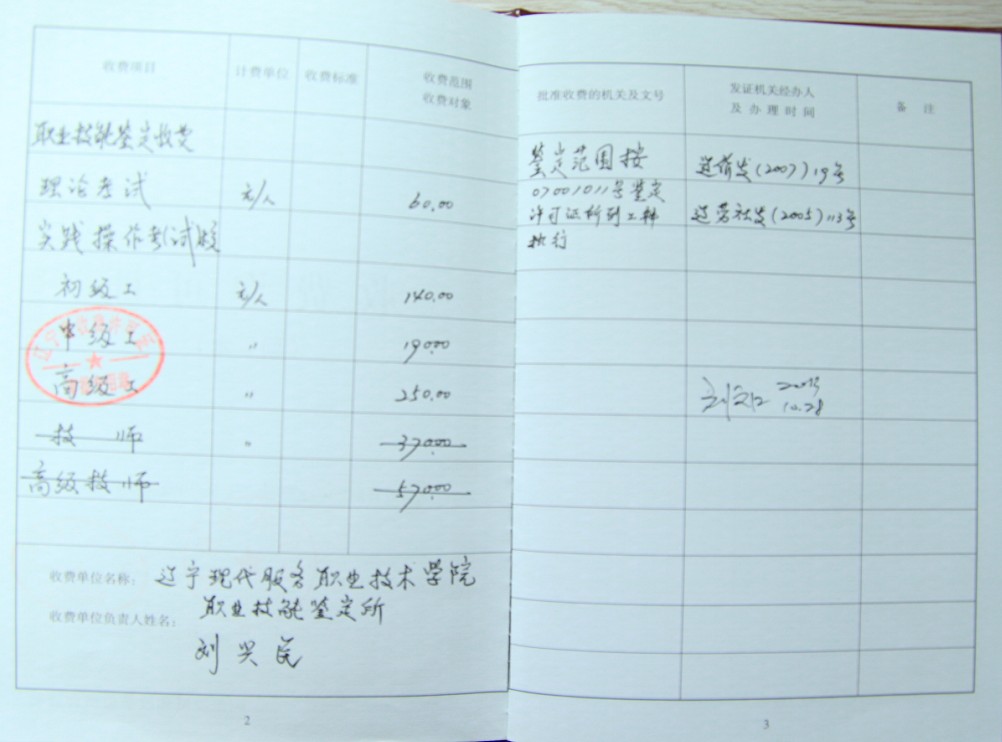 收费项目 计费单位 收费标准 收费范围
收费对象
职业技能鉴定收费
理论考试 元/人 60.00
实践操作考试
初级工 元/人 140.00
中级工 〃 190.00
高级工 〃 250.00
技师 〃 370.00
高级技师 570.00
收费单位名称: 辽宁现代服务职业技术学院
职业技能鉴定所
收费单位负责人姓名:
刘兴民
2
批准收费的机关及文号 发证机关经办人
及办理时间 备注
鉴定范围按 (2007)19号
07001011号鉴定
许可证所列工种 辽劳社发(2005)113号
执行
10.28
3